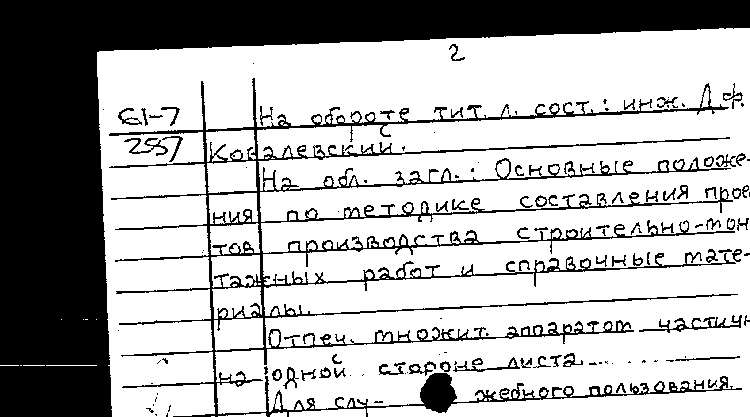 2
61-7 На обороте тит. л. сост.: инж. Д.Ф.
2557 Ковалевский.
На обл. загл.: Основные положе-
ния по методике составления прое
тов производства строительно-мон
тажных работ и справочные мате-
риалы.
Отпеч. множит. аппаратом частичн
на одной стороне листа.
Для слу- жебного пользования.